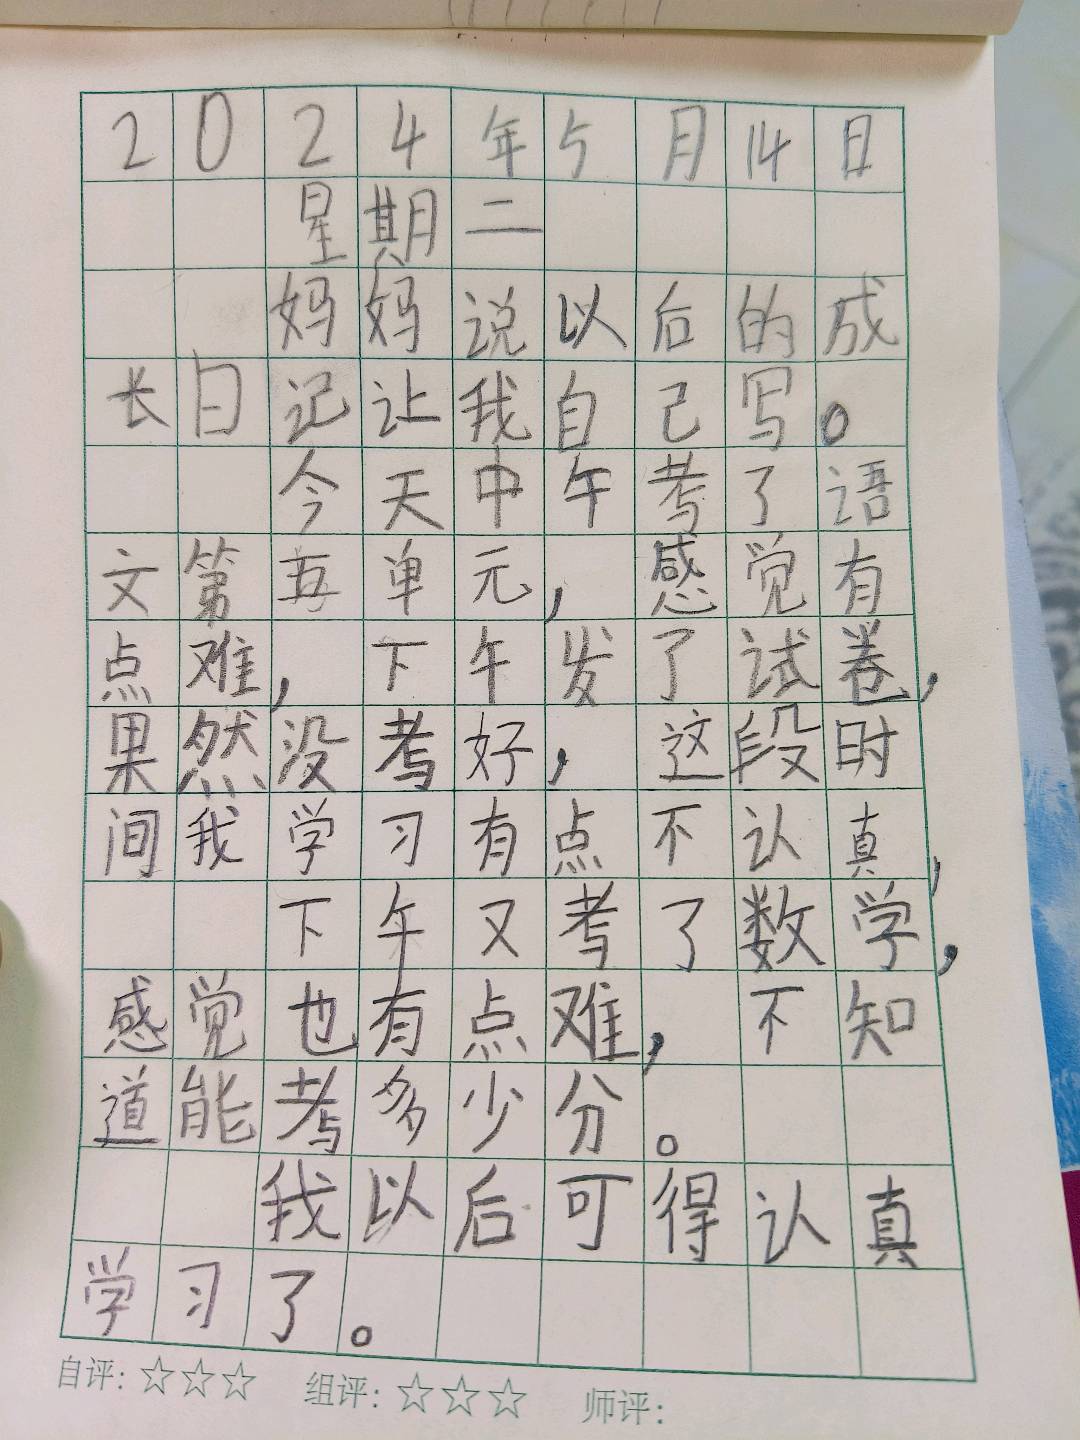 2024年5月14日
星期二
妈妈说以后的成
长日记让我自己写。
今天中午考了语
文第五单元，感觉有
点难，下午发了试卷，
果然没考好，这段时
间我学习有点不认真，
下午又考了数学，
感觉也有点难，不知
道能考多少分。
我以后可得认真
学习了。
自评：☆☆☆ 组评：☆☆☆ 师评：